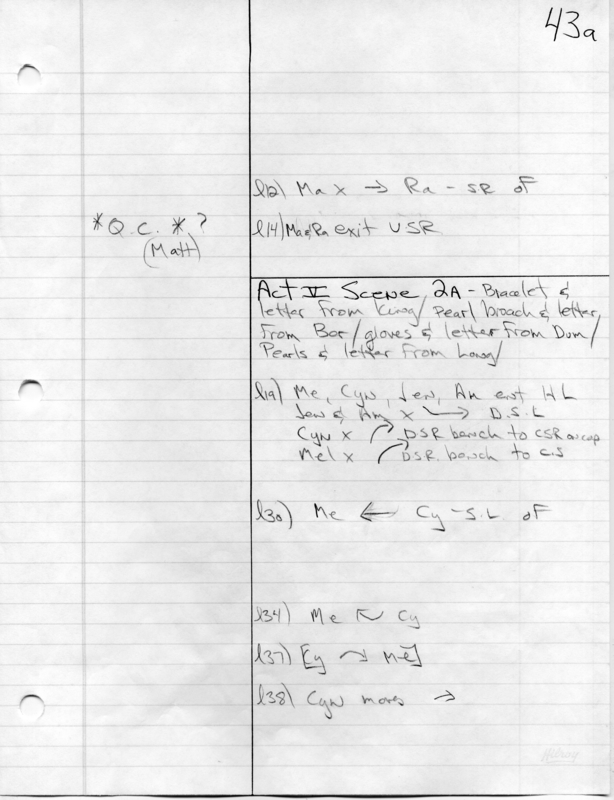 43a
l12) Ma x → Ra - SR of
*Q.C. *?
(Matt)
l14) Ma & Ra exit USR
Act V Scene 2A - Bracelet &
letter from King/ Pearl broach & letter
From Ber/ gloves & letter From Dum/
Pearls & letter From Long/
l19) Me, Cyn, Jen, An ent HL
Jen & An x → D.S.L
Cyn x DSR bench to CSR on cap
Mel x DSR bench to C.S
l30) Me ← Cy - S.L of
l34) Me ↖ Cy
l37) [Cy ↘ Me]
l38) Cyn moves →